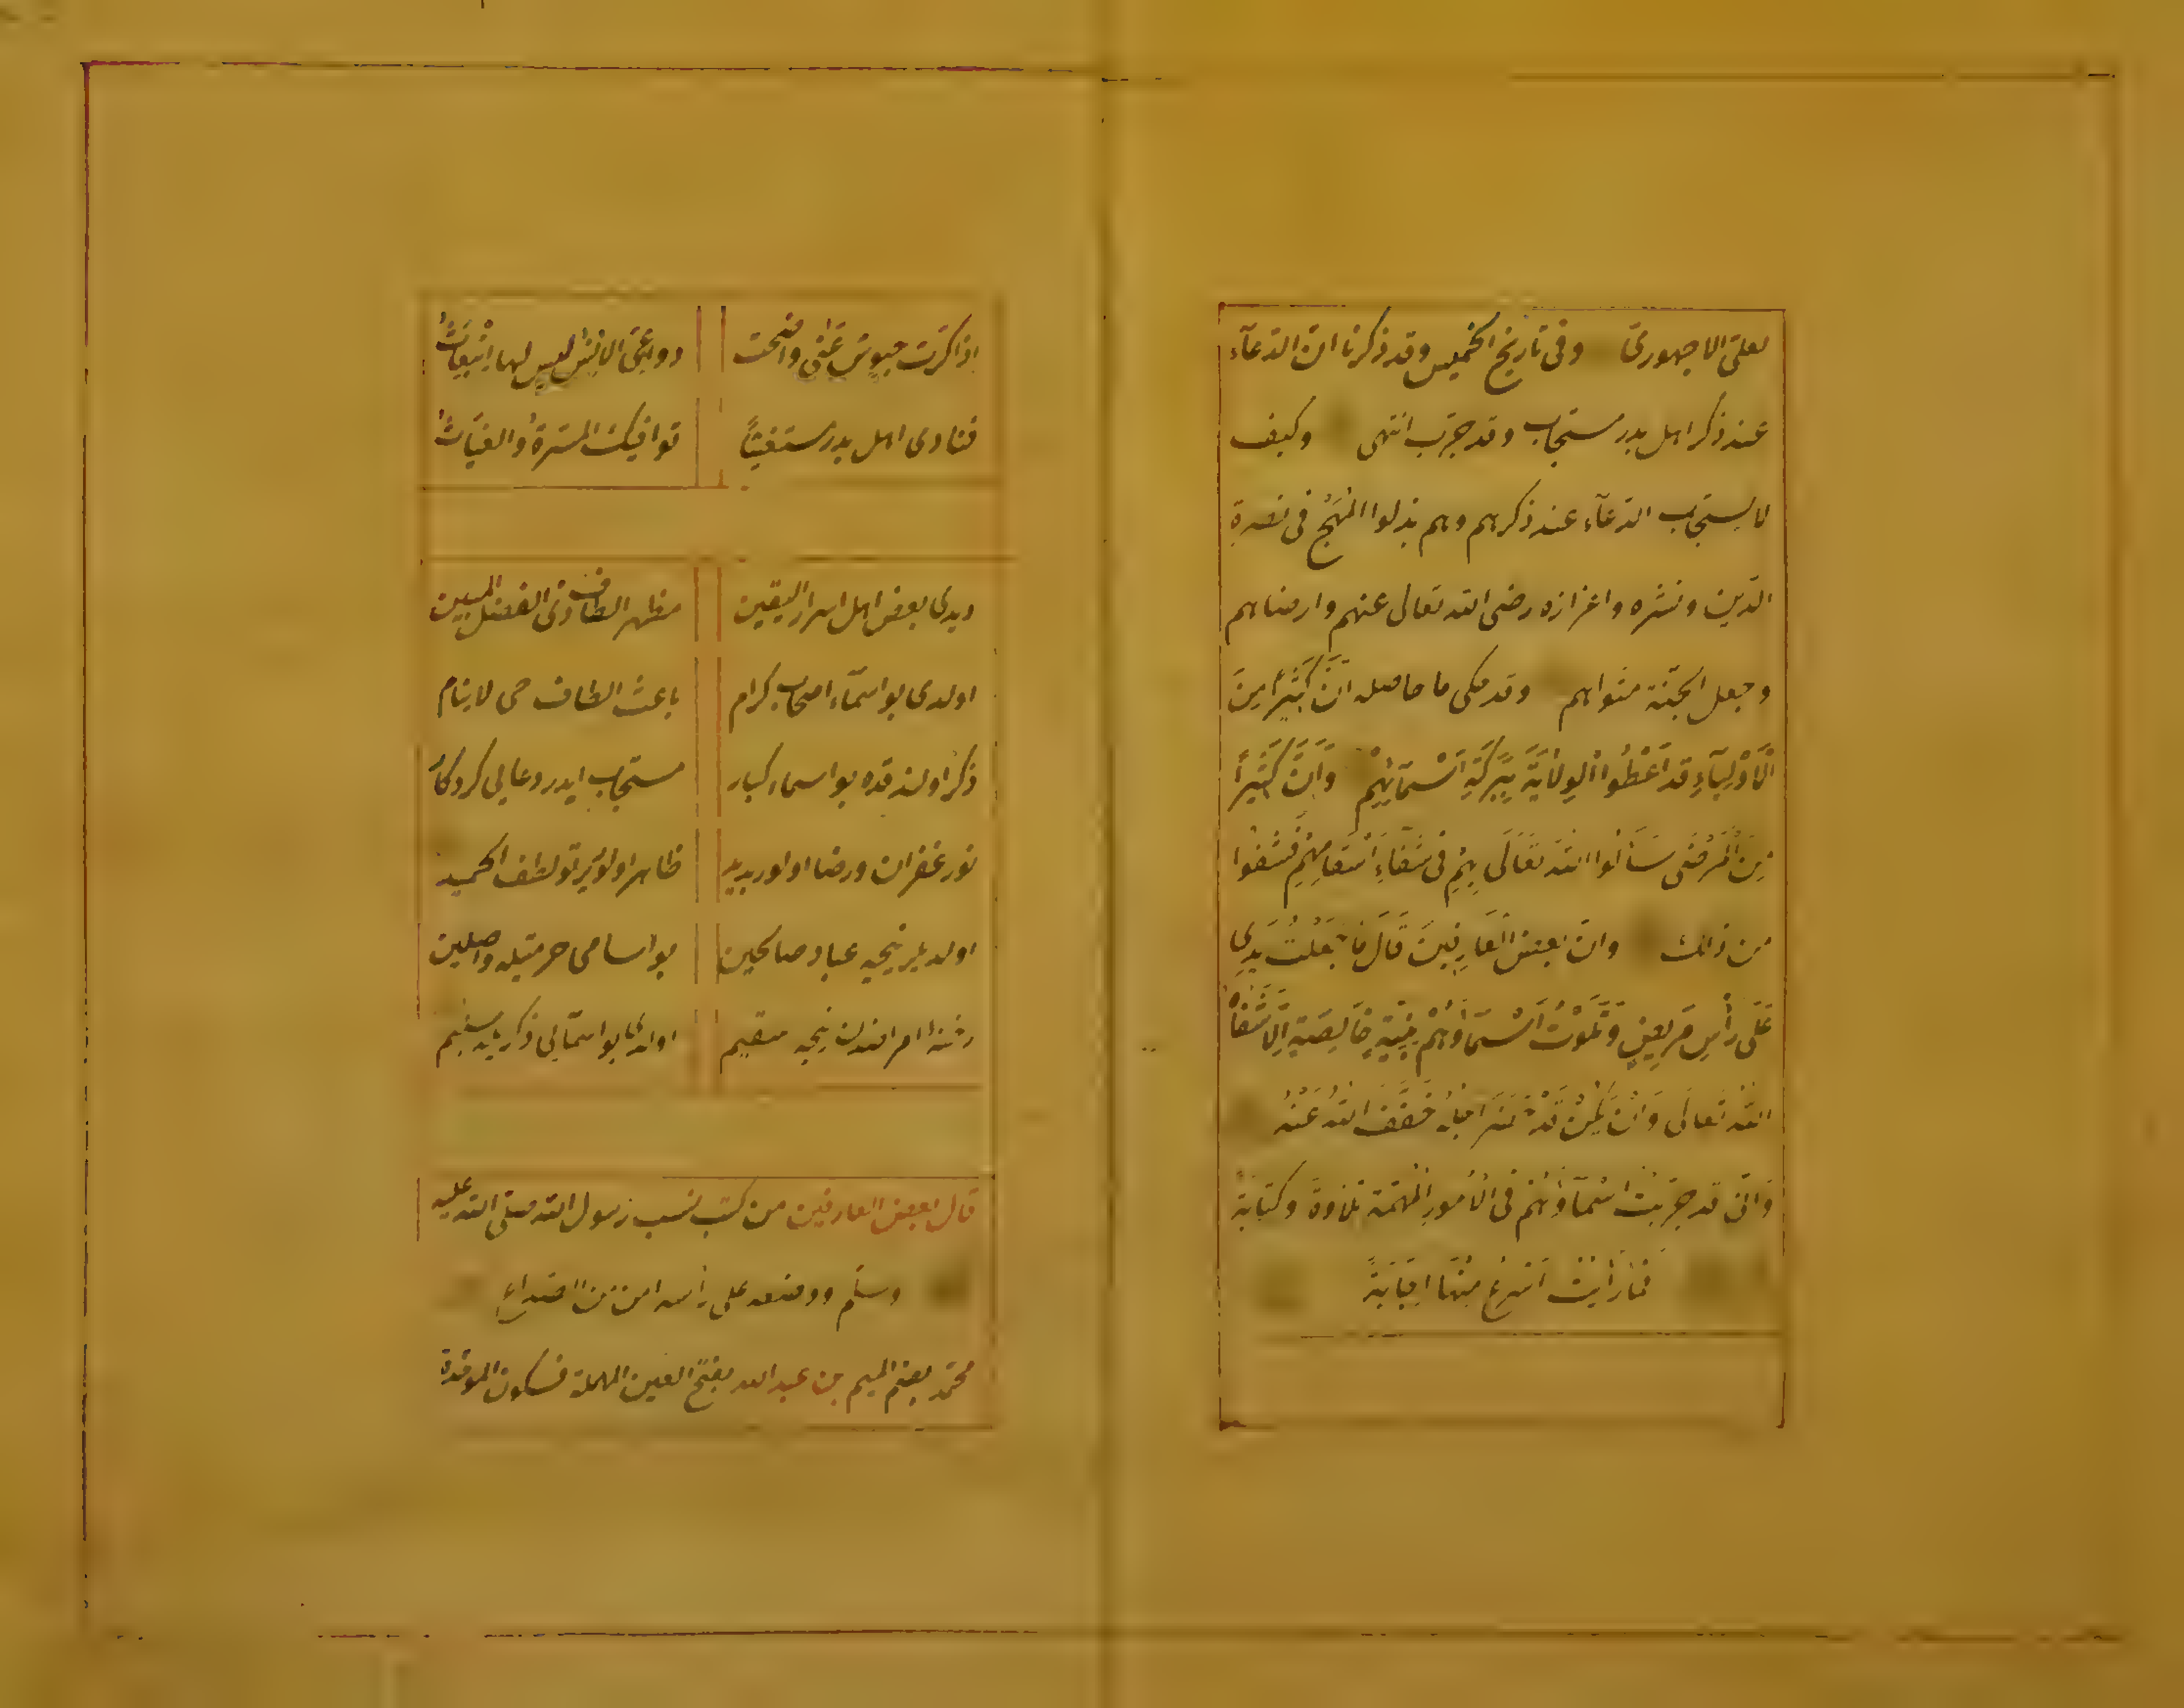 لعلىّ الاجهورىّ وفى تاريخ الخميس وقد ذكرنا انّ الدّعآء
عند ذكر اهل بدر مستجاب وقد جرّب انتهى وكيف
لا يستجاب الدّعآء عند ذكرهم وهم بذلوا المُهَج فى نصرة
الدّين ونشره واعزازه رضى الله تعالى عنهم وارضاهم
وجعل الجنّة مثواهم وقد حكى ما حاصله انَّ كَثيرًا مِنَ
الْاَوْلِيَآءِ قد اُعْطُوا الْوِلَايَةَ بِبَرَكَةِ اَسْمَآئِهِمْ وَاَنَّ كَثيرًا
مِنَ الْمَرْضَى سَأَلُوا اللهَ تَعَالَى بِهِمْ فى شفَاءِ اَسْقَامِهِمْ فَشُفُوا
من ذلك وانّ بعض الْعَارِفينَ قَالَ مَا جَعَلْتُ يَدِى
عَلَى رَأْسِ مَرِيضٍ وَتَلَوْتُ اَسْمَاؤُهُمْ بِنِيَّةٍ خَالِصَةٍ اِلَّا شَفَاهُ
اللهُ تَعَالَى وَاِنْ يَكُنْ قَدْ حَضَرَ اجَلُهُ خَفَّفَ اللهُ عَنْهُ
وَانّى قد جرّبتُ اسْمَآؤُهُمْ فى الْاُمُورِ الْمُهِمَّة تلاوةً وكتابةً
فَمَا رَأَيْتُ اَسْرَعَ مِنْهَا اِجَابَةً
اذا كرّت جيوش عَنّى واضحت دواعى الانس ليس لها انْبِعَاثُ
فنادى اهل بدر مستغيثًا توافيك المسَرّةُ والغيَاثُ
ديدى بعض اهل اسرار اليقين مظهر الطاف ذى الفضل المبين
اولدى بو اسمآء اصحاب كرام باعث الطاف حى لا ينام
ذكر اولندقده بو اسماء كبار مستجاب ايدر دعايى كردكار
نور غفران ورضا اولور بديد ظاهر اولور پرتو لطف الحميد
اولديلر نيجه عباد صالحين بو اسامى حرمتيله واصلين
امراضدن نيجه سقيم اولدى بو اسمآيى ذكر
قال بعض العارفين من كتب نسب رسول الله صلى الله عليه
وسلّم ووضعه على رأسه امن من الصداع
محمّد بضم الميم بن عبد الله بفتح العين المهملة فسكون الموحّدة